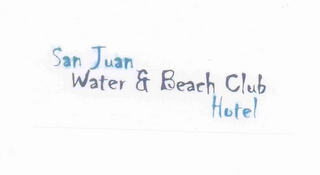 San Juan
Water & Beach Club
Hotel